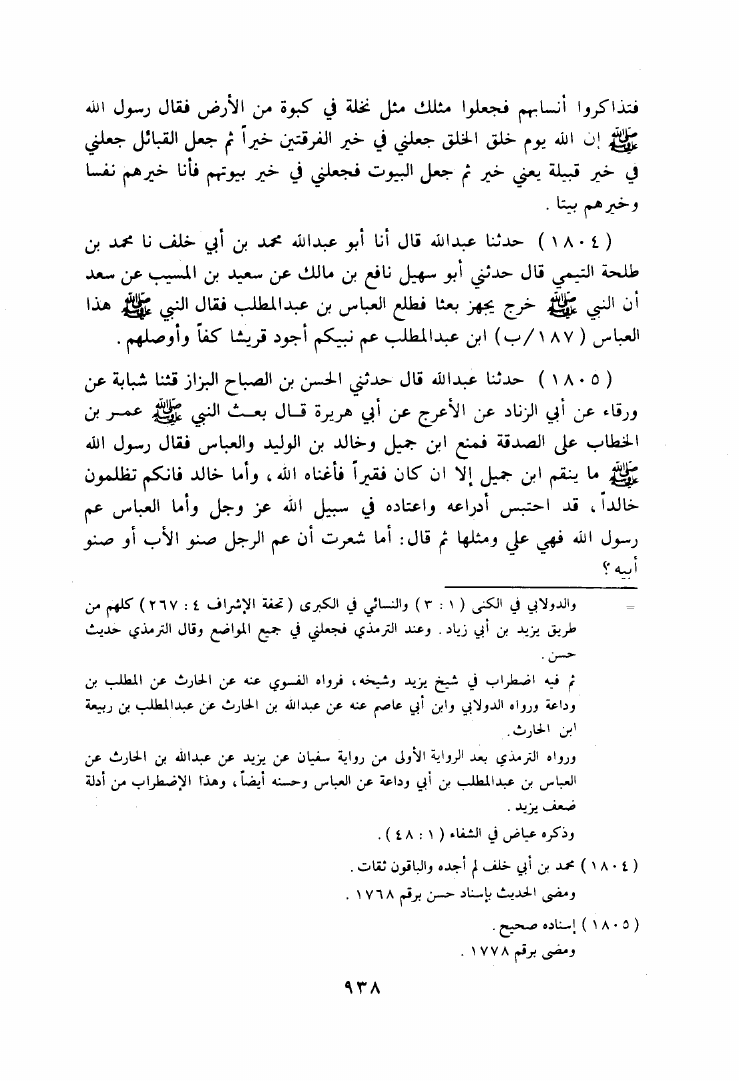 فتذاكروا أنسابهم فجعلوا مثلك مثل نخلة في كبوة من الأرض فقال رسول الله
ﷺ إن الله يوم خلق الخلق جعلني في خير الفرقتين خيراً ثم جعل القبائل جعلني
في خير قبيلة يعني خير ثم جعل البيوت فجعلني في خير بيوتهم فأنا خيرهم نفسا
وخيرهم بيتا .
(١٨٠٤) حدثنا عبدالله قال أنا أبو عبدالله محمد بن أبي خلف نا محمد بن
طلحة التيمي قال حدثني أبو سهيل نافع بن مالك عن سعيد بن المسيب عن سعد
أن النبي ﷺ خرج يجهز بعثا فطلع العباس بن عبدالمطلب فقال النبي ﷺ هذا
العباس (١٨٧/ب) ابن عبدالمطلب عم نبيكم أجود قريشا كفاً وأوصلهم .
(١٨٠٥) حدثنا عبدالله قال حدثني الحسن بن الصباح البزاز قثنا شبابة عن
ورقاء عن أبي الزناد عن الأعرج عن أبي هريرة قال بعث النبي ﷺ عمر بن
الخطاب على الصدقة فمنع ابن جميل وخالد بن الوليد والعباس فقال رسول الله
ﷺ ما ينقم ابن جميل إلا ان كان فقيراً فأغناه الله، وأما خالد فانكم تظلمون
خالداً، قد احتبس أدراعه واعتاده في سبيل الله عز وجل وأما العباس عم
رسول الله فهي علي ومثلها ثم قال: أما شعرت أن عم الرجل صنو الأب أو صنو
أبيه ؟
= والدولابي في الكنى (١ : ٣) والنسائي في الكبرى (تحفة الإشراف ٤ : ٢٦٧) كلهم من
طريق يزيد بن أبي زياد. وعند الترمذي فجعلني في جميع المواضع وقال الترمذي حديث
حسن.
ثم فيه اضطراب في شيخ يزيد وشيخه، فرواه الفسوي عنه عن الحارث عن المطلب بن
وداعة ورواه الدولابي وابن أبي عاصم عنه عن عبدالله بن الحارث عن عبدالمطلب بن ربيعة
ابن الحارث.
ورواه الترمذي بعد الرواية الأولى من رواية سفيان عن يزيد عن عبدالله بن الحارث عن
العباس بن عبدالمطلب بن أبي وداعة عن العباس وحسنه أيضاً، وهذا الإضطراب من أدلة
ضعف يزيد .
وذكره عياض في الشفاء (١ : ٤٨).
(١٨٠٤) محمد بن أبي خلف لم أجده والباقون ثقات .
ومضى الحديث بإسناد حسن برقم ١٧٦٨ .
(١٨٠٥) إسناده صحيح .
ومضى برقم ١٧٧٨ .
٩٣٨